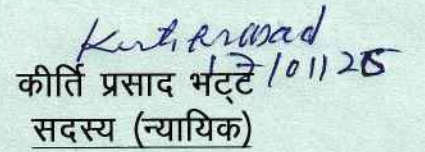 Kirti Prasad
17/01/25
कीर्ति प्रसाद भट्टे
सदस्य (न्यायिक)